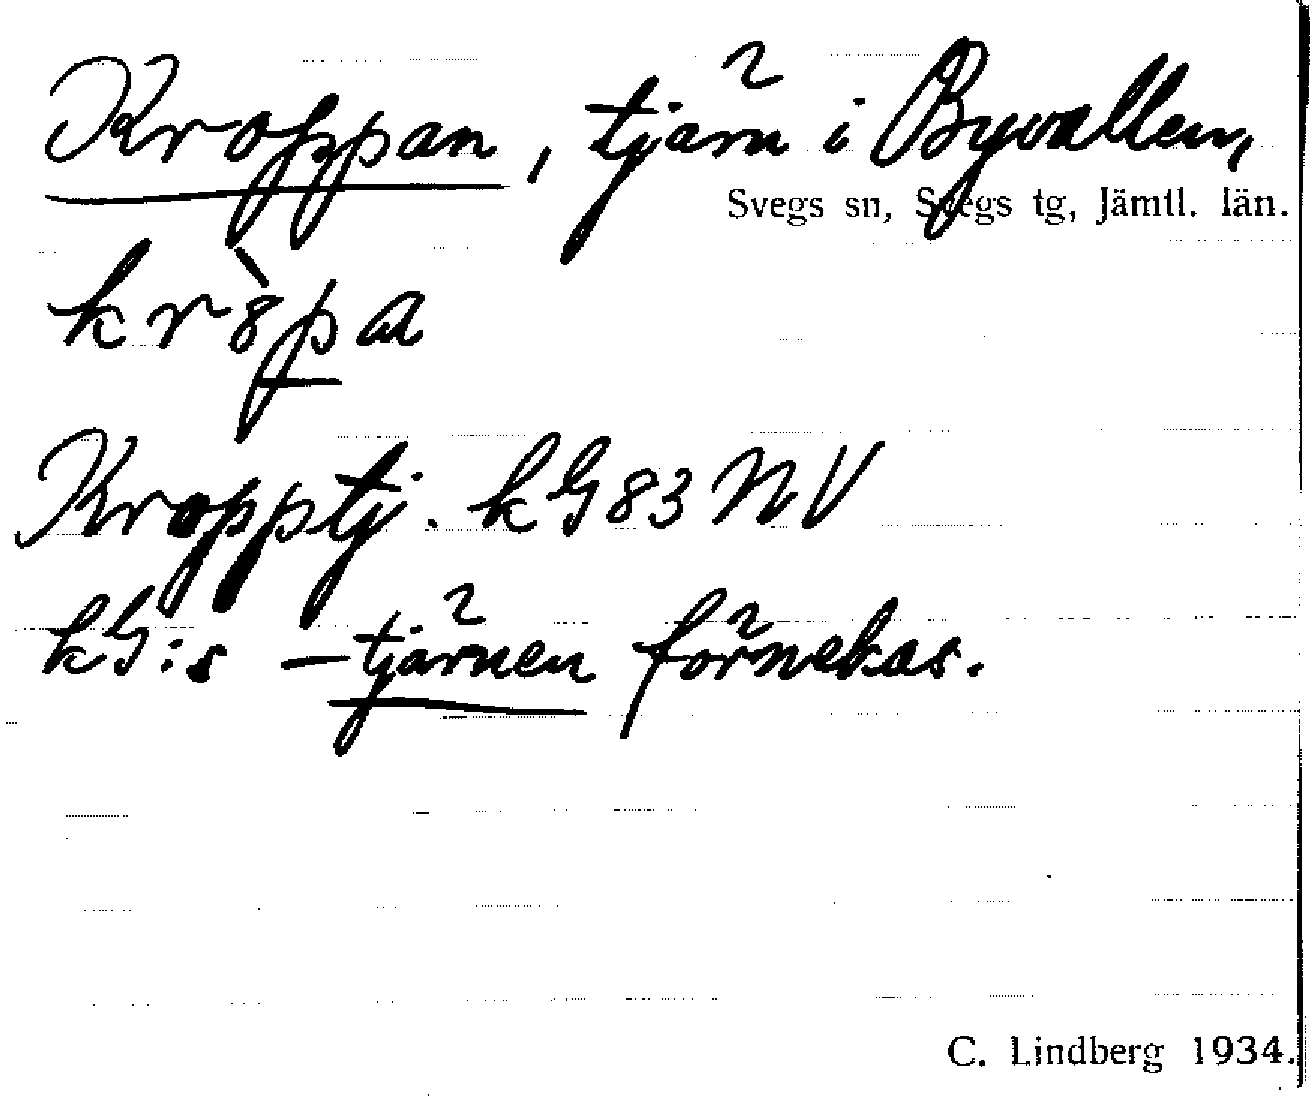 Kroppan, tjärn i Byvallen,
Svegs sn, Svegs tg, Jämtl. län.
kr8̀p̲a
Kropptj. kG83NV
kG:s – tjärnen förnekas.
C. Lindberg 1934.